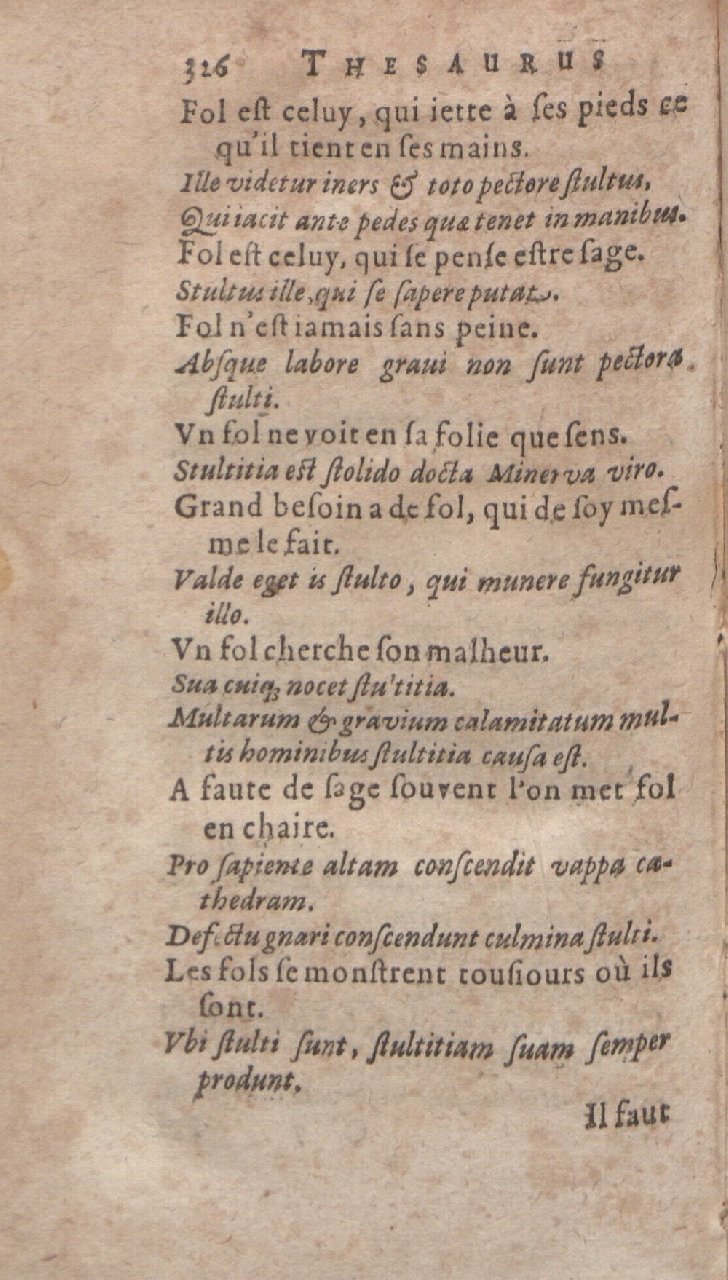 326 THESAURUS
Fol eſt celuy, qui iette à ſes pieds ce
qu'il tient en ſes mains.
Ille videtur iners & toto pectore ſtultus,
Qui iacit ante pedes quæ tenet in manibus.
Fol eſt celuy, qui ſe penſe eſtre ſage.
Stultus ille, qui ſe ſapere putat.
Fol n'eſt iamais ſans peine.
Abſque labore graui non ſunt pectora
ſtulti.
Vn fol ne voit en ſa folie que ſens.
Stultitia eſt ſtolido docta Minerva viro.
Grand beſoin a de fol, qui de ſoy meſ-
me le fait.
Valde eget is ſtulto, qui munere fungitur
illo.
Vn fol cherche ſon malheur.
Sua cuiq; nocet ſtu'titia.
Multarum & gravium calamitatum mul-
tis hominibus ſtultitia cauſa eſt.
A faute de ſage ſouvent l'on met fol
en chaire.
Pro ſapiente altam conſcendit vappa ca-
thedram.
Defectu gnari conſcendunt culmina ſtulti.
Les fols ſe monſtrent touſiours où ils
ſont.
Vbi ſtulti ſunt, ſtultitiam ſuam ſemper
produnt.
Il faut